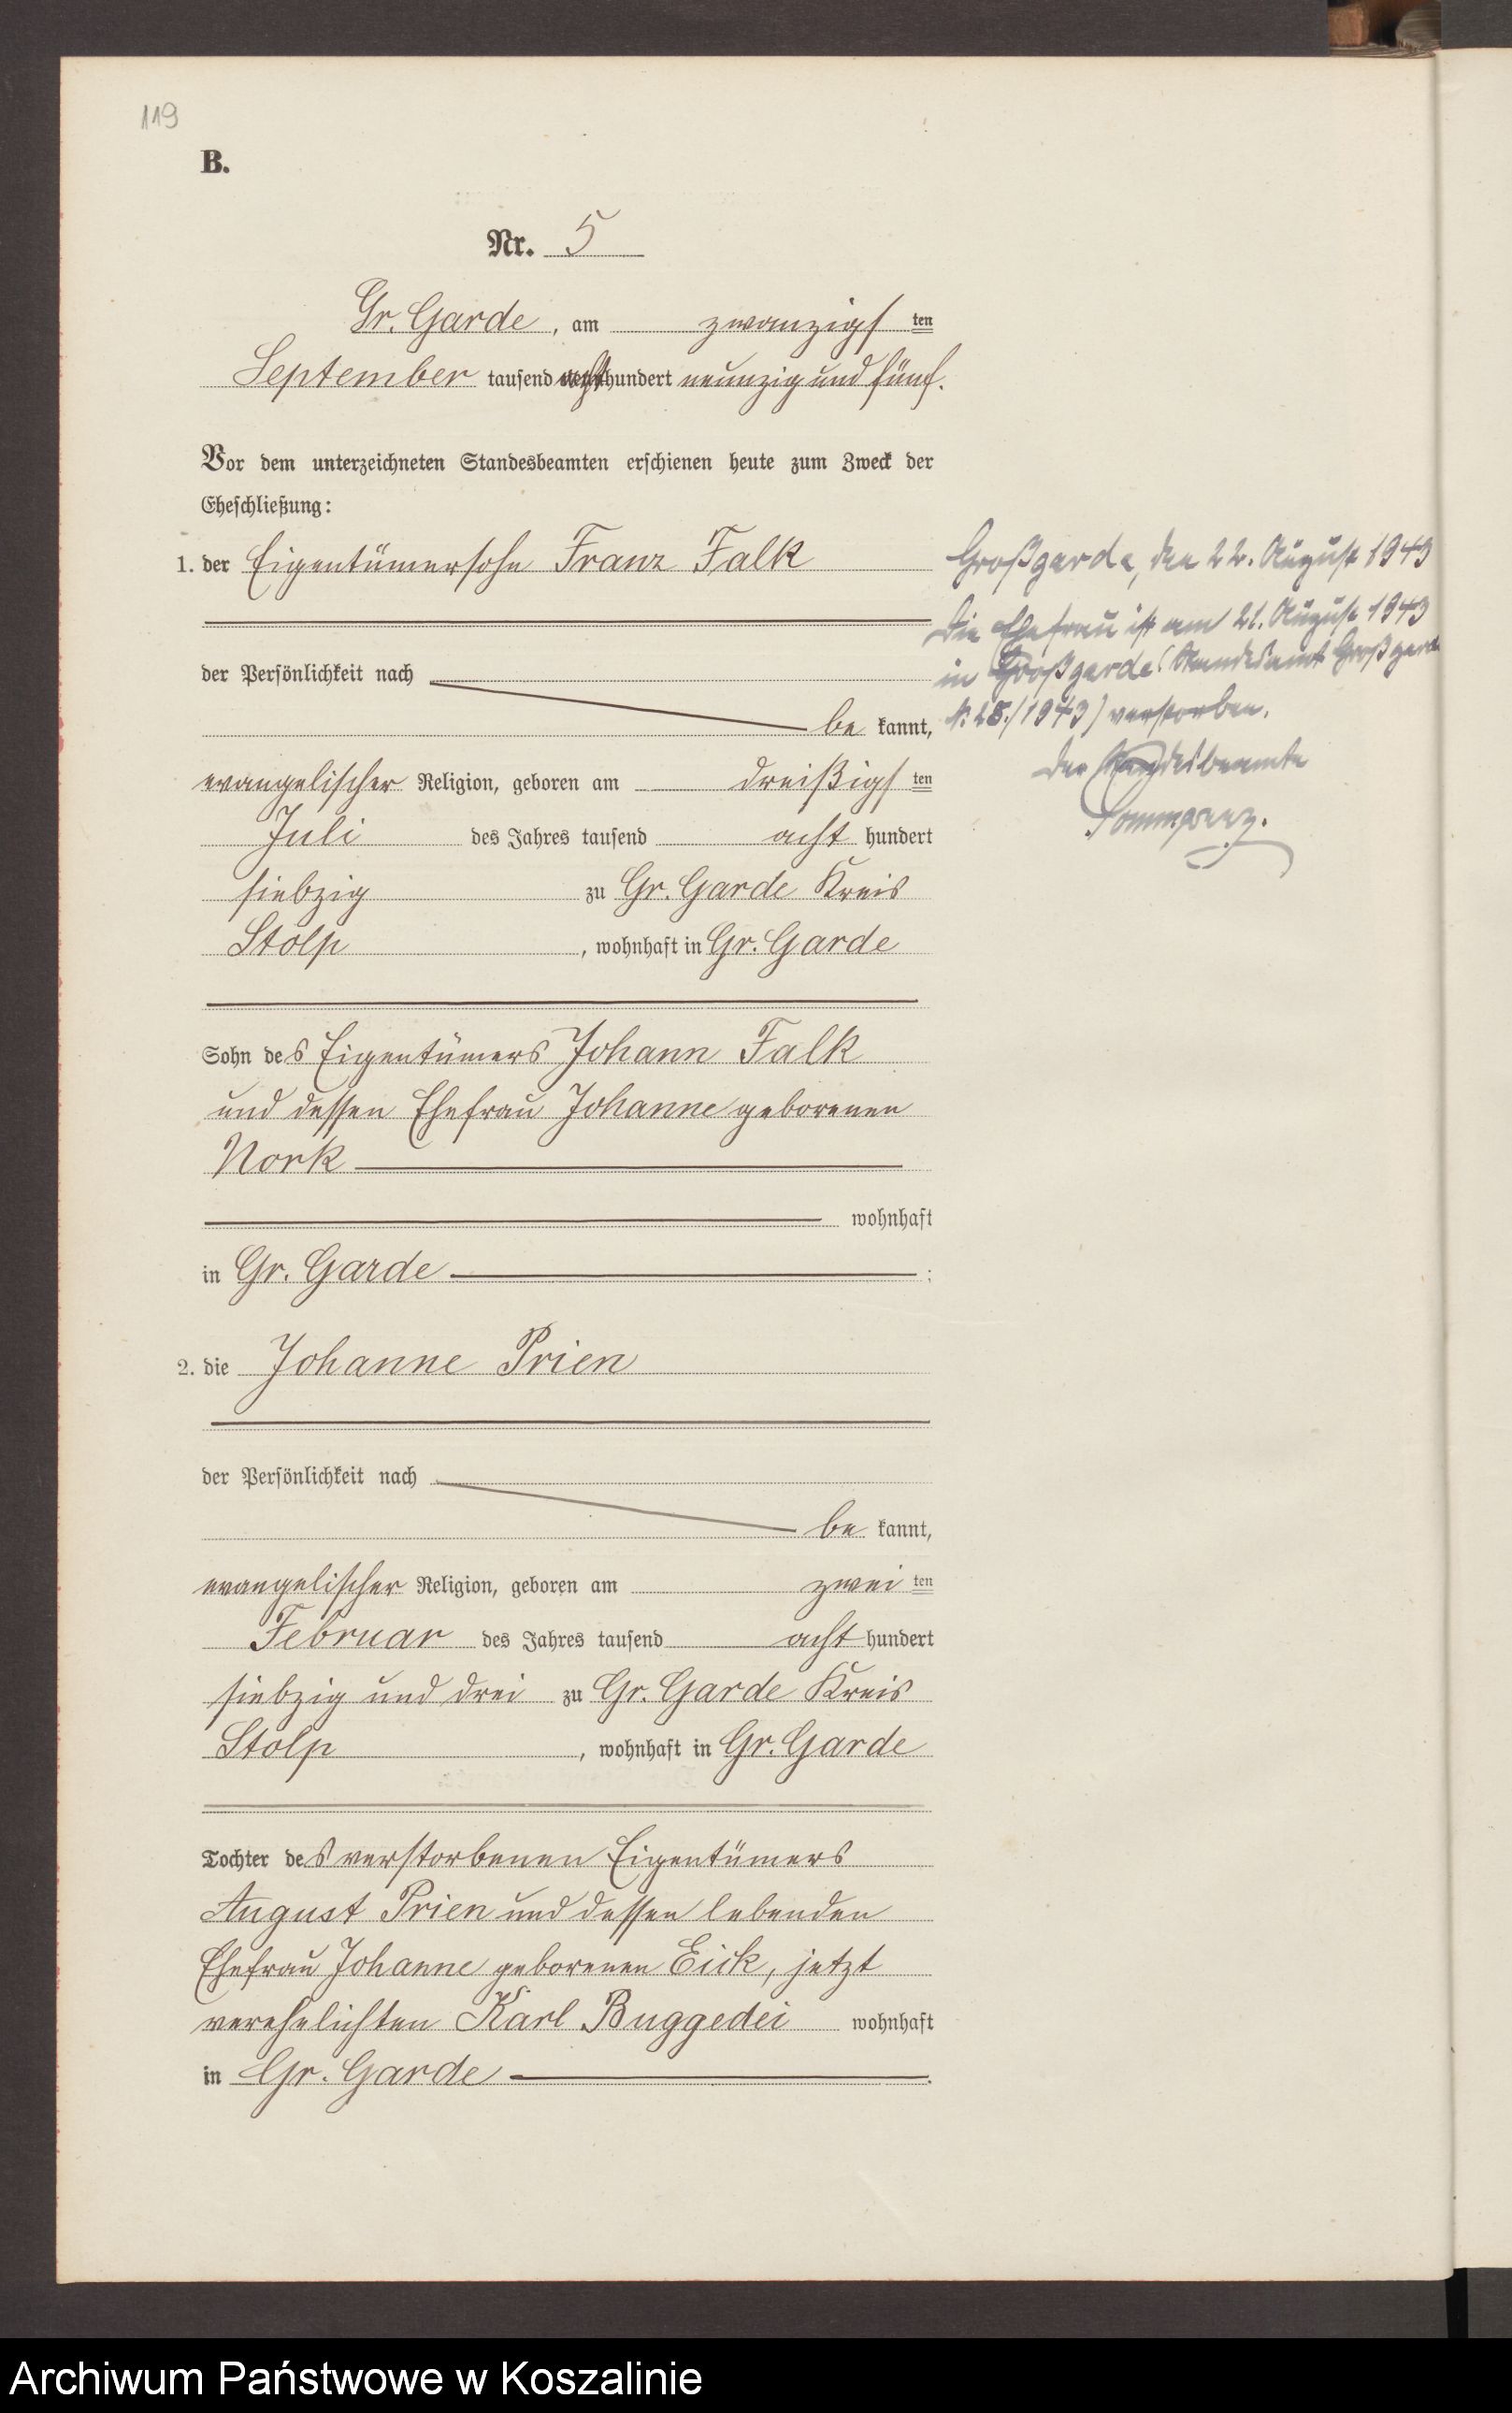 119
B.
Nr. 5
Gr. Garde, am zwanzigsten
September tausend achthundert neunzig und fünf.
Vor dem unterzeichneten Standesbeamten erschienen heute zum Zweck der
Eheschließung:
1. der Eigentümersohn Franz Falk
der Persönlichkeit nach
be kannt,
evangelischer Religion, geboren am dreißigsten
Juli des Jahres tausend acht hundert
siebzig zu Gr. Garde Kreis
Stolp, wohnhaft in Gr. Garde
Sohn des Eigentümers Johann Falk
und dessen Ehefrau Johanne geborenen
Nork
wohnhaft
in Gr. Garde ;
2. die Johanne Prien
der Persönlichkeit nach
be kannt,
evangelischer Religion, geboren am zweiten
Februar des Jahres tausend acht hundert
siebzig und drei zu Gr. Garde Kreis
Stolp, wohnhaft in Gr. Garde
Tochter des verstorbenen Eigentümers
August Prien und dessen lebenden
Ehefrau Johanne geborenen Eick, jetzt
verehelichten Karl Buggedei wohnhaft
in Gr. Garde.
Großgarde, den 22. August 1943
Die Ehefrau ist am 21. August 1943
in Großgarde (Standesamt Großgarde
N. 28./1943) verstorben.
Der Standesbeamte
Archiwum Państwowe w Koszalinie